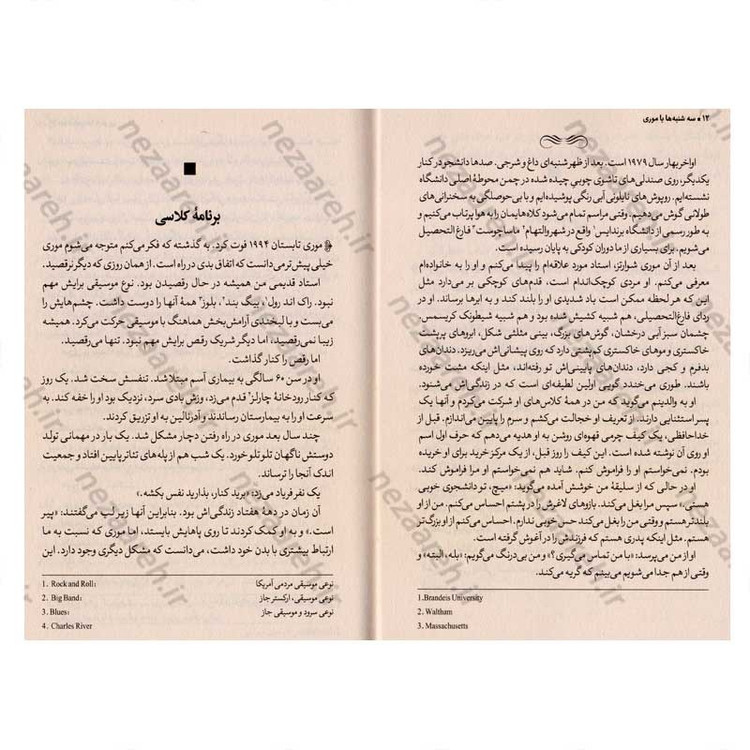 ۱۲ ● سه شنبه‌ها با موری
اواخر بهار سال ۱۹۷۹ است. بعد از ظهر شنبه‌ای داغ و شرجی. صدها دانشجو در کنار
یکدیگر، روی صندلی‌های تاشوی چوبی چیده شده در چمن محوطهٔ اصلی دانشگاه
نشسته‌ایم. روپوش‌های نایلونی آبی رنگی پوشیده‌ایم و با بی‌حوصلگی به سخنرانی‌های
طولانی گوش می‌دهیم. وقتی مراسم تمام می‌شود کلاه‌هایمان را به هوا پرتاب می‌کنیم و
به طور رسمی از دانشگاه برندایس۱ واقع در شهر والتهام۲ ماساچوست۳ فارغ التحصیل
می‌شویم. برای بسیاری از ما دوران کودکی به پایان رسیده است.
بعد از آن موری شوارتز، استاد مورد علاقه‌ام را پیدا می‌کنم و او را به خانواده‌ام
معرفی می‌کنم. او مردی کوچک‌اندام است، قدم‌های کوچکی بر می‌دارد، مثل
این که هر لحظه ممکن است باد شدیدی او را بلند کند و به ابرها برساند. او در
ردای فارغ‌التحصیلی، هم شبیه کشیش شده بود و هم شبیه شیطونک کریسمس.
چشمان سبز آبی درخشان، گوش‌های بزرگ، بینی مثلثی شکل، ابروهای پرپشت
خاکستری و موهای خاکستری کم‌پشتی دارد که روی پیشانی‌اش می‌ریزد. دندان‌های
بدفرم و کجی دارد، دندان‌های پایینی‌اش تو رفته‌اند، مثل اینکه مشت خورده
باشند. طوری می‌خندد گویی اولین لطیفه‌ای است که در زندگی‌اش می‌شنود.
او به والدینم می‌گوید که من در همهٔ کلاس‌های او شرکت می‌کردم و آنها یک
پسر استثنایی دارند. از تعریف او خجالت می‌کشم و سرم را پایین می‌اندازم. قبل از
خداحافظی، یک کیف چرمی قهوه‌ای روشن به او هدیه می‌دهم که حرف اول اسم
او روی آن نوشته شده است. این کیف را روز قبل، از یک مرکز خرید برای او خریده
بودم. نمی‌خواستم او را فراموش کنم. شاید هم نمی‌خواستم او مرا فراموش کند.
او در حالی که از سلیقهٔ من خوشش آمده می‌گوید: «میچ، تو دانشجوی خوبی
هستی.» سپس مرا بغل می‌کند. بازوهای لاغرش را در پشتم احساس می‌کنم. من از او
بلندتر هستم و وقتی من را بغل می‌کند حس خوبی ندارم. احساس می‌کنم از او بزرگ تر
هستم. مثل اینکه پدری هستم که فرزندش را در آغوش گرفته است.
او از من می‌پرسد: «با من تماس می‌گیری؟» و من بی‌درنگ می‌گویم: «بله، البته» و
وقتی از هم جدا می‌شویم می‌بینم که گریه می‌کند.
1.Brandeis University
2. Waltham
3. Massachusetts
برنامهٔ کلاسی
موری تابستان ۱۹۹۴ فوت کرد. به گذشته که فکر می‌کنم متوجه می‌شوم موری
خیلی پیش‌تر می‌دانست که اتفاق بدی در راه است. از همان روزی که دیگر نرقصید.
استاد قدیمی من همیشه در حال رقصیدن بود. نوع موسیقی برایش مهم
نبود. راک اند رول۱، بیگ بند۲، بلوز۳ همهٔ آنها را دوست داشت. چشم‌هایش را
می‌بست و با لبخندی آرامش‌بخش هماهنگ با موسیقی حرکت می‌کرد. همیشه
زیبا نمی‌رقصید، اما دیگر شریک رقص برایش مهم نبود. تنها می‌رقصید.
اما رقص را کنار گذاشت.
او در سن ۶۰ سالگی به بیماری آسم مبتلا شد. تنفسش سخت شد. یک روز
که کنار رودخانهٔ چارلز۴ قدم می‌زد، وزش بادی سرد، نزدیک بود او را خفه کند. به
سرعت او را به بیمارستان رساندند و آدرنالین به او تزریق کردند.
چند سال بعد موری در راه رفتن دچار مشکل شد. یک بار در مهمانی تولد
دوستش ناگهان تلو تلو خورد. یک شب هم از پله‌های تئاتر پایین افتاد و جمعیت
اندک آنجا را ترساند.
یک نفر فریاد می‌زد: «برید کنار، بذارید نفس بکشه.»
آن زمان در دههٔ هفتاد زندگی‌اش بود. بنابراین آنها زیر لب می‌گفتند: «پیر
است.» و به او کمک کردند تا روی پاهایش بایستد، اما موری که نسبت به ما
ارتباط بیشتری با بدن خود داشت، می‌دانست که مشکل دیگری وجود دارد. این
1. Rock and Roll: نوعی موسیقی مردمی آمریکا
2. Big Band: نوعی موسیقی، ارکستر جاز
3. Blues: نوعی سرود و موسیقی جاز
4. Charles River
nezaareh.ir